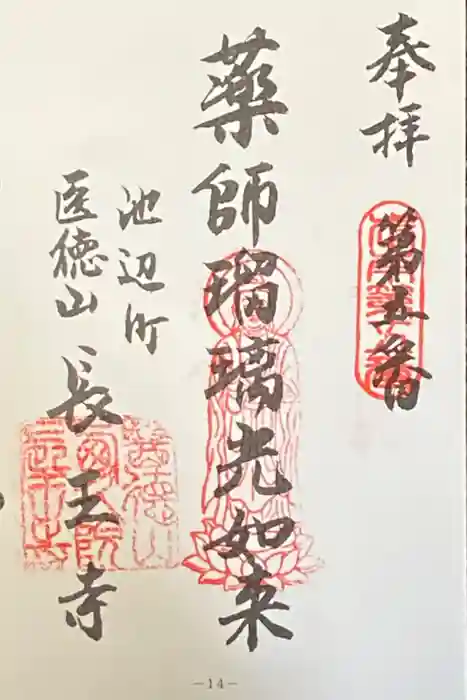 奉拝
第五番
薬師瑠璃光如来
池辺町
医徳山 長王寺
-14-